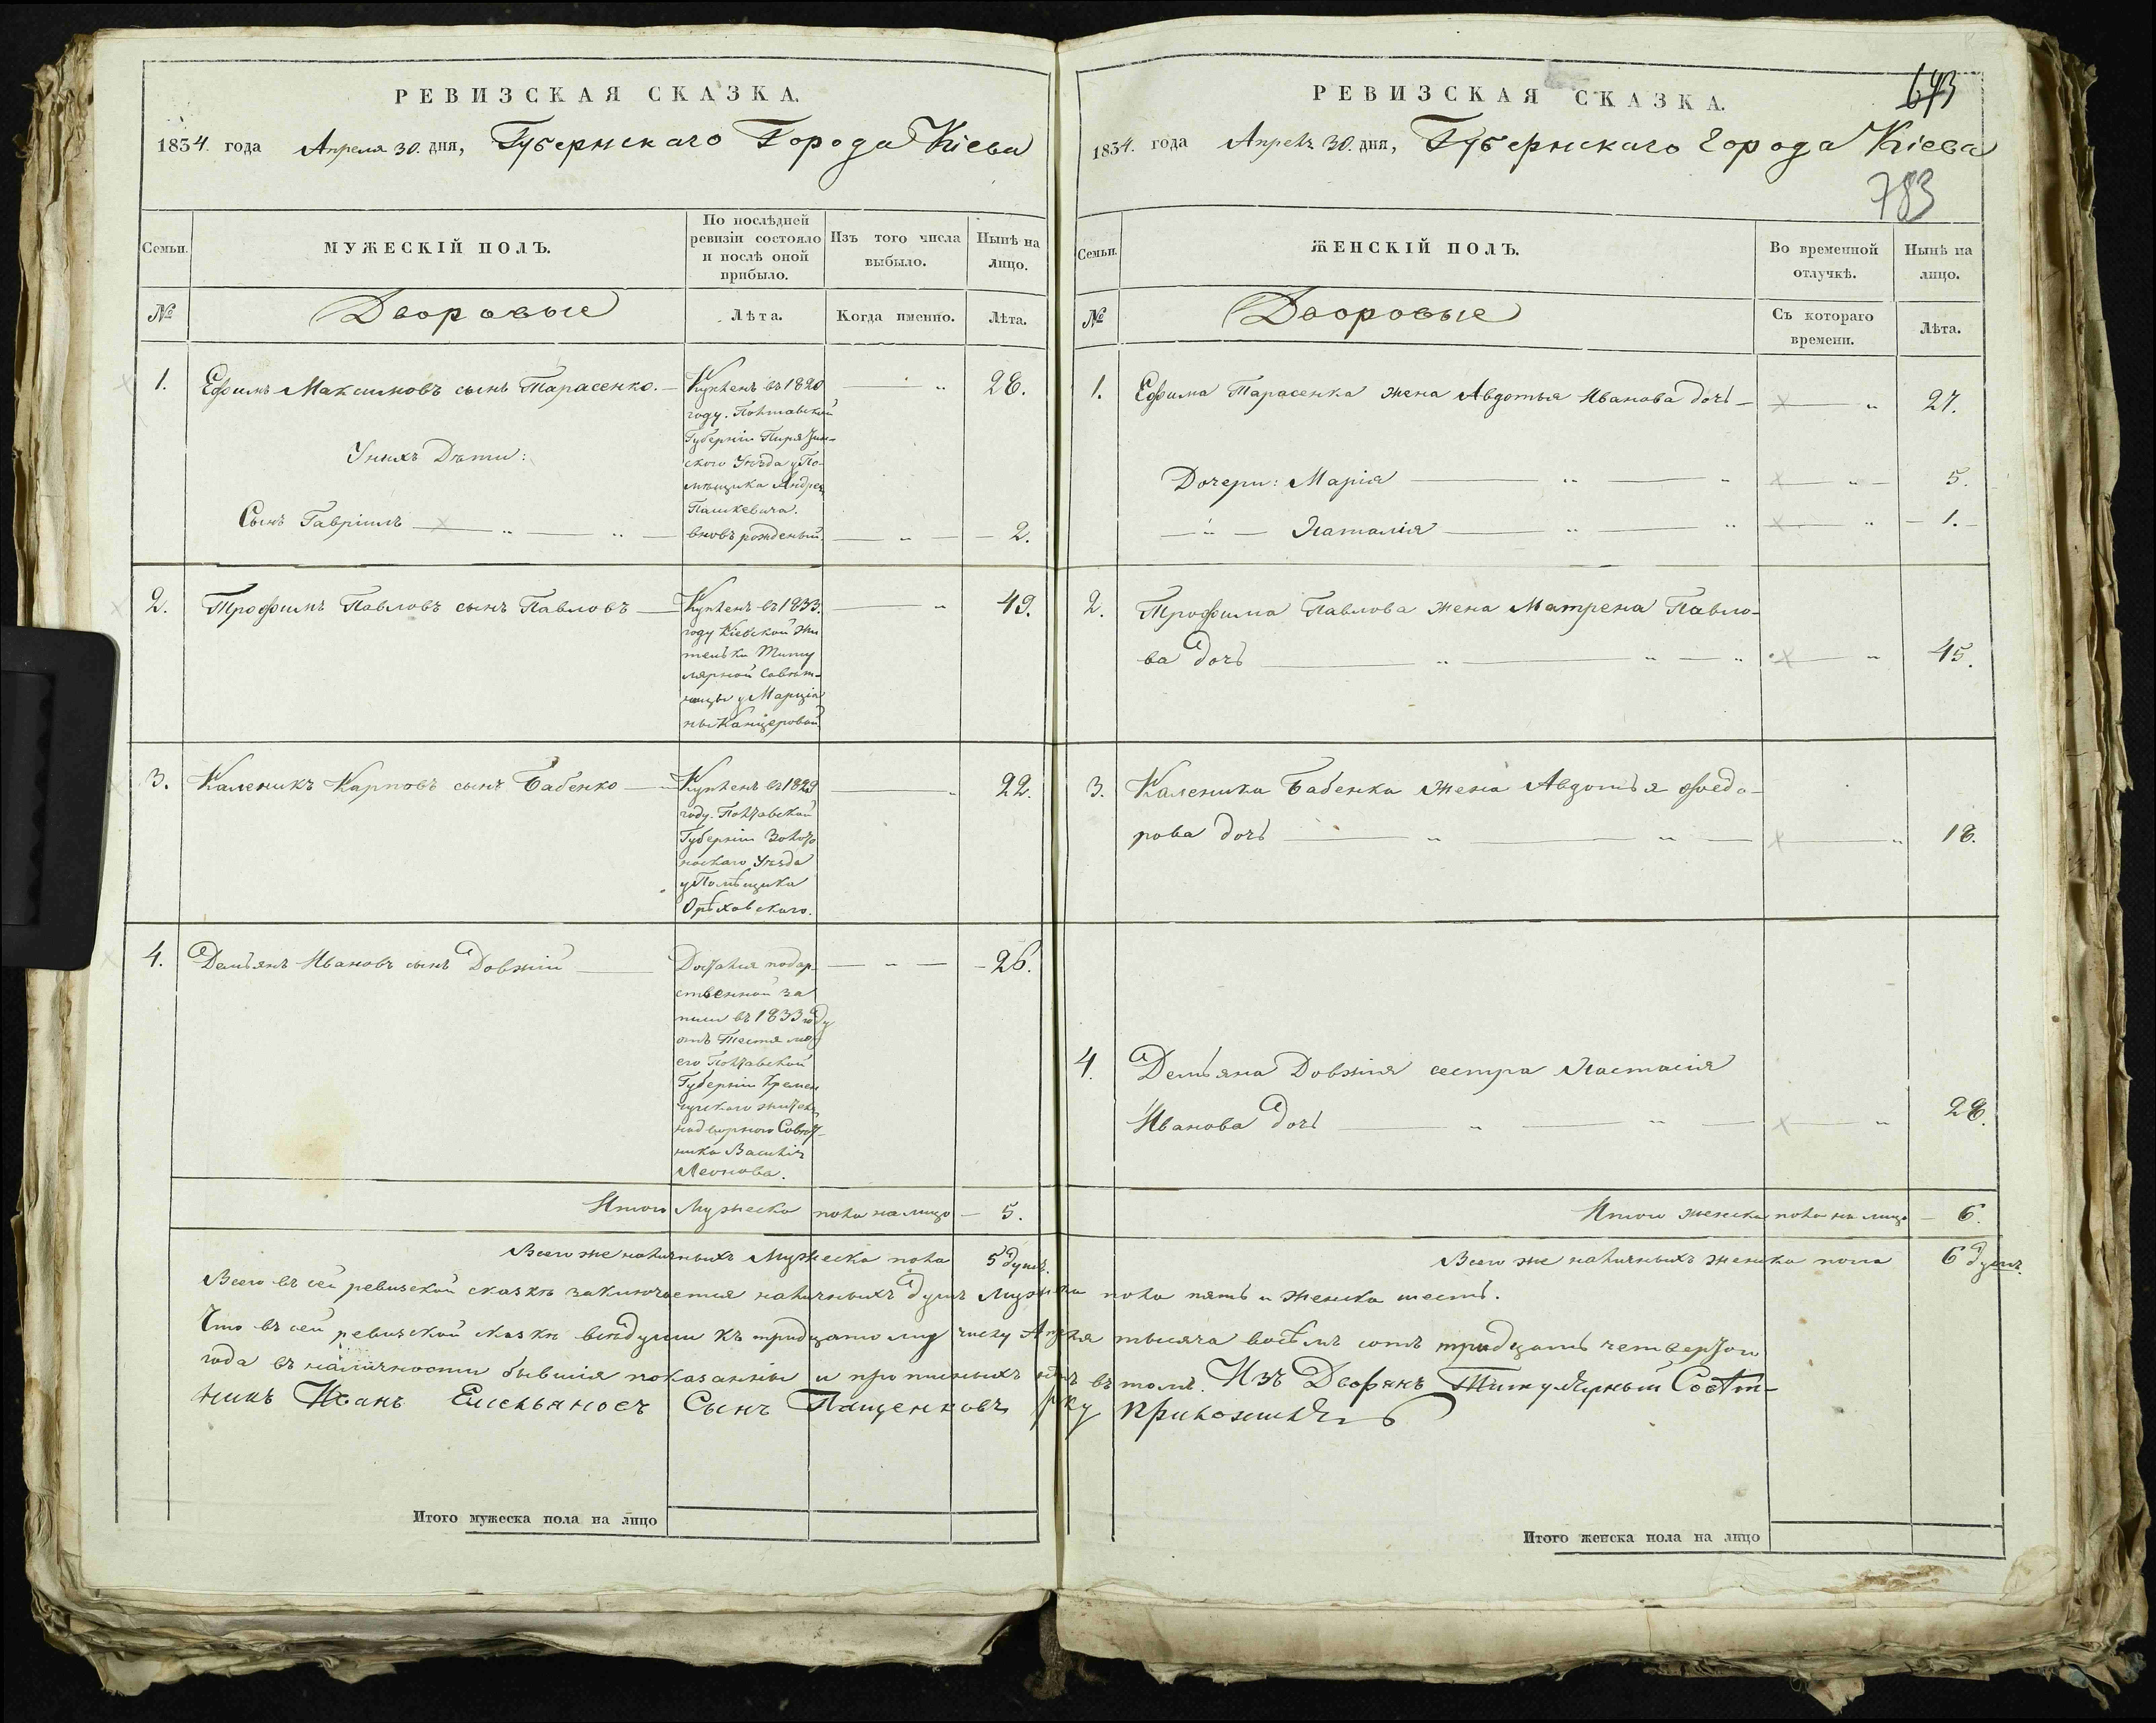 РЕВИЗСКАЯ СКАЗКА.
1834. года Апреля 30. дня, Губернскаго Города Кіева
Семьи.
МУЖЕСКІЙ ПОЛЪ.
По послѣдней
ревизіи состояло
и послѣ оной
прибыло.
Изъ того числа
выбыло.
Нынѣ на
лицо.
№
Дворовые
Лѣта.
Когда именно.
Лѣта.
1. Ефимъ Максимовъ сынъ Тарасенко. — Купленъ въ 1820 — „ 28.
году. Полтавской
Губерніи Пирятин-
скаго Уѣзда у По-
мѣщика Андрея
Пашкевича.
У нихъ Дѣти:
Сынъ Гавріилъ — „ — „ — вновь рожденый. — „ — 2.
2. Трофимъ Павловъ сынъ Павловъ — Купленъ въ 1833. — „ 49.
году Кіевской жи
тельки Титу
лярной Совѣт-
ницы у Марціа
ны Канцеровой
3. Каленикъ Карповъ сынъ Бабенко — Купленъ въ 1829 — „ 22.
году. Полтавской
Губерніи Золото
ношскаго Уѣзда
у Помѣщика
Орѣховскаго.
4. Демьянъ Ивановъ сынъ Довжій — Досталия по дар — „ — 26.
ственной за
писи въ 1833 году
отъ Тестя мо
его Полтавской
Губерніи Кремен
чугскаго жителя
надворнаго Совѣт-
ника Василія
Леонова.
Итого Мужеска пола на лицо — 5.
Всего же наличныхъ Мужеска пола 5 душъ.
Итого мужеска пола на лицо
РЕВИЗСКАЯ СКАЗКА.
643
1834. года Апреля 30. дня, Губернскаго Города Кіева
783
Семьи.
ЖЕНСКІЙ ПОЛЪ.
Во временной
отлучкѣ.
Нынѣ на
лицо.
№
Дворовые
Съ котораго
времени.
Лѣта.
1. Ефима Тарасенка жена Авдотья Иванова дочь — „ 27.
Дочери: Марія — „ — „ — „ — 5.
— „ — Наталія — „ — „ — „ — 1. —
2. Трофима Павлова жена Матрена Павло-
ва дочь — „ — „ — „ — „ 45.
3. Каленика Бабенка жена Авдотья Федо-
рова дочь — „ — „ — „ 18.
4. Демьяна Довжія сестра Настасія
Иванова дочь — „ — „ — „ 28.
Итого женска пола на лицо — 6.
Всего же наличныхъ женска пола 6 душъ.
Всего въ сей ревизской сказкѣ заключается наличныхъ душъ Мужска пола пять и женска шесть.
Что въ сей ревизской сказкѣ всѣ души къ тридцатому числу Апреля тысяча восѣмь сотъ тридцать четвертаго
года въ наличности бывшія показанны и прописныхъ нѣтъ въ томъ. Изъ Дворянъ Титулярный Совѣт-
никъ Иванъ Емельяновъ Сынъ Пащенковъ руку приложилъ
Итого женска пола на лицо